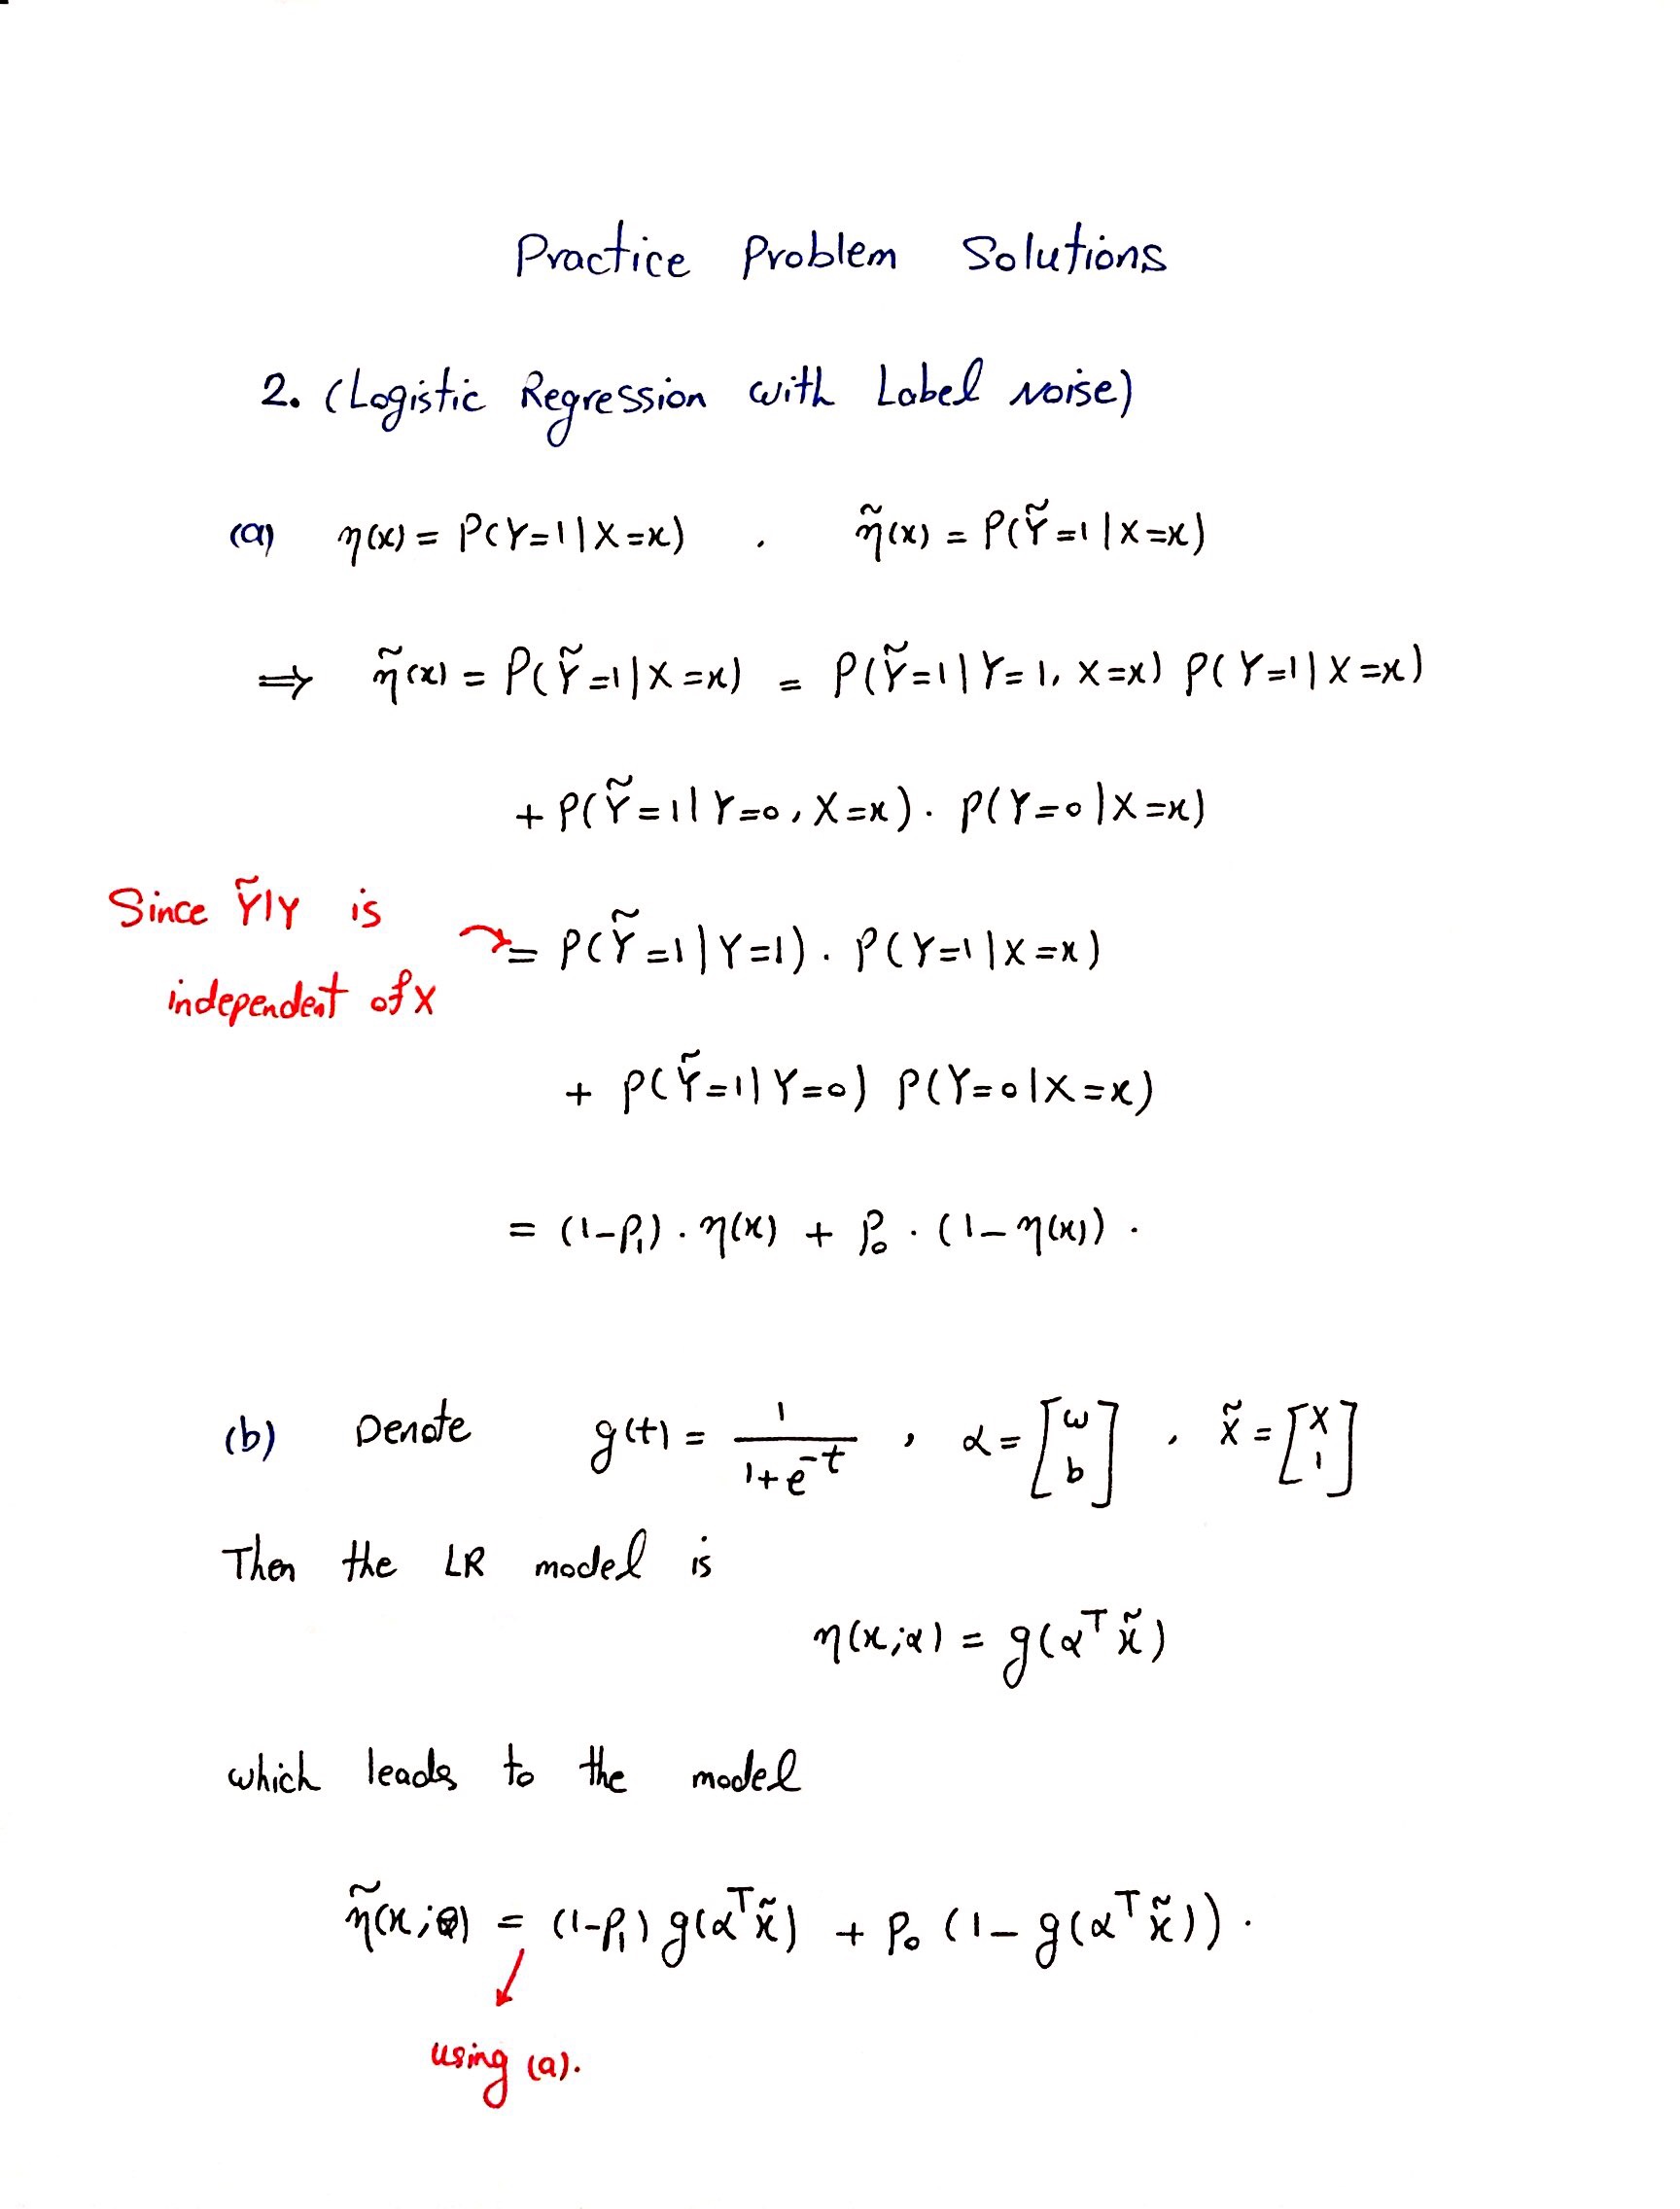 Practice Problem Solutions
2. (Logistic Regression with Label Noise)
(a) η(x) = P(Y=1|X=x) . η̃(x) = P(Ỹ=1|X=x)
⇒ η̃(x) = P(Ỹ=1|X=x) = P(Ỹ=1|Y=1, X=x) P(Y=1|X=x)
+ P(Ỹ=1|Y=0, X=x) . P(Y=0|X=x)
Since Ỹ|Y is
= P(Ỹ=1|Y=1) . P(Y=1|X=x)
independent of X
+ P(Ỹ=1|Y=0) P(Y=0|X=x)
= (1-ρ₁) . η(x) + ρ₀ . (1-η(x)) .
(b) Denote g(t) = 1/(1+e^-t) , α = [w b] , x̃ = [x 1]
Then the LR model is
η(x;α) = g(α^T x̃)
which leads to the model
η̃(x;θ) = (1-ρ₁) g(α^T x̃) + ρ₀ (1- g(α^T x̃)) .
using (a).